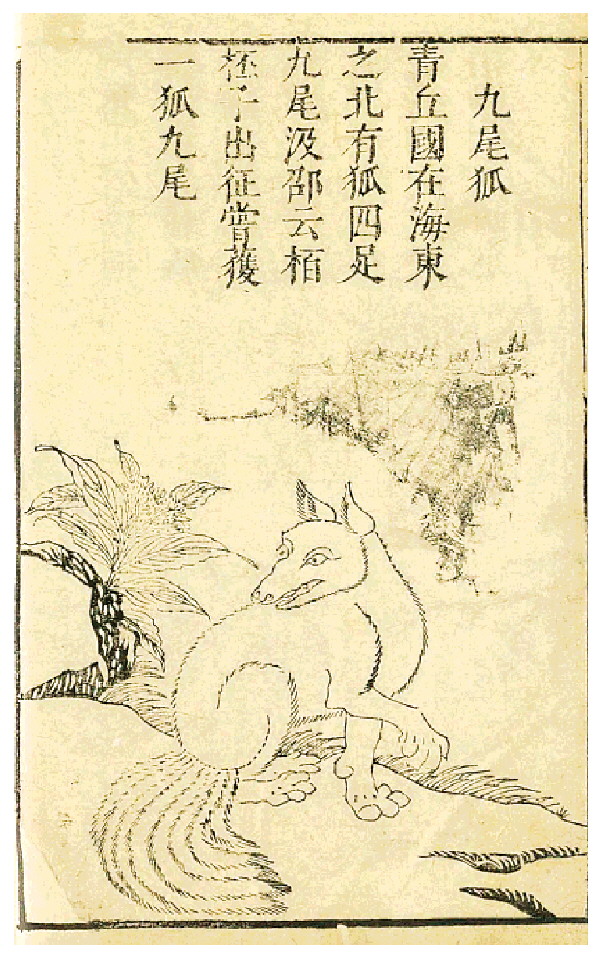 九尾狐
青丘國在海東
之北有狐四足
九尾汲郡云栢
杼子出征嘗獲
一狐九尾